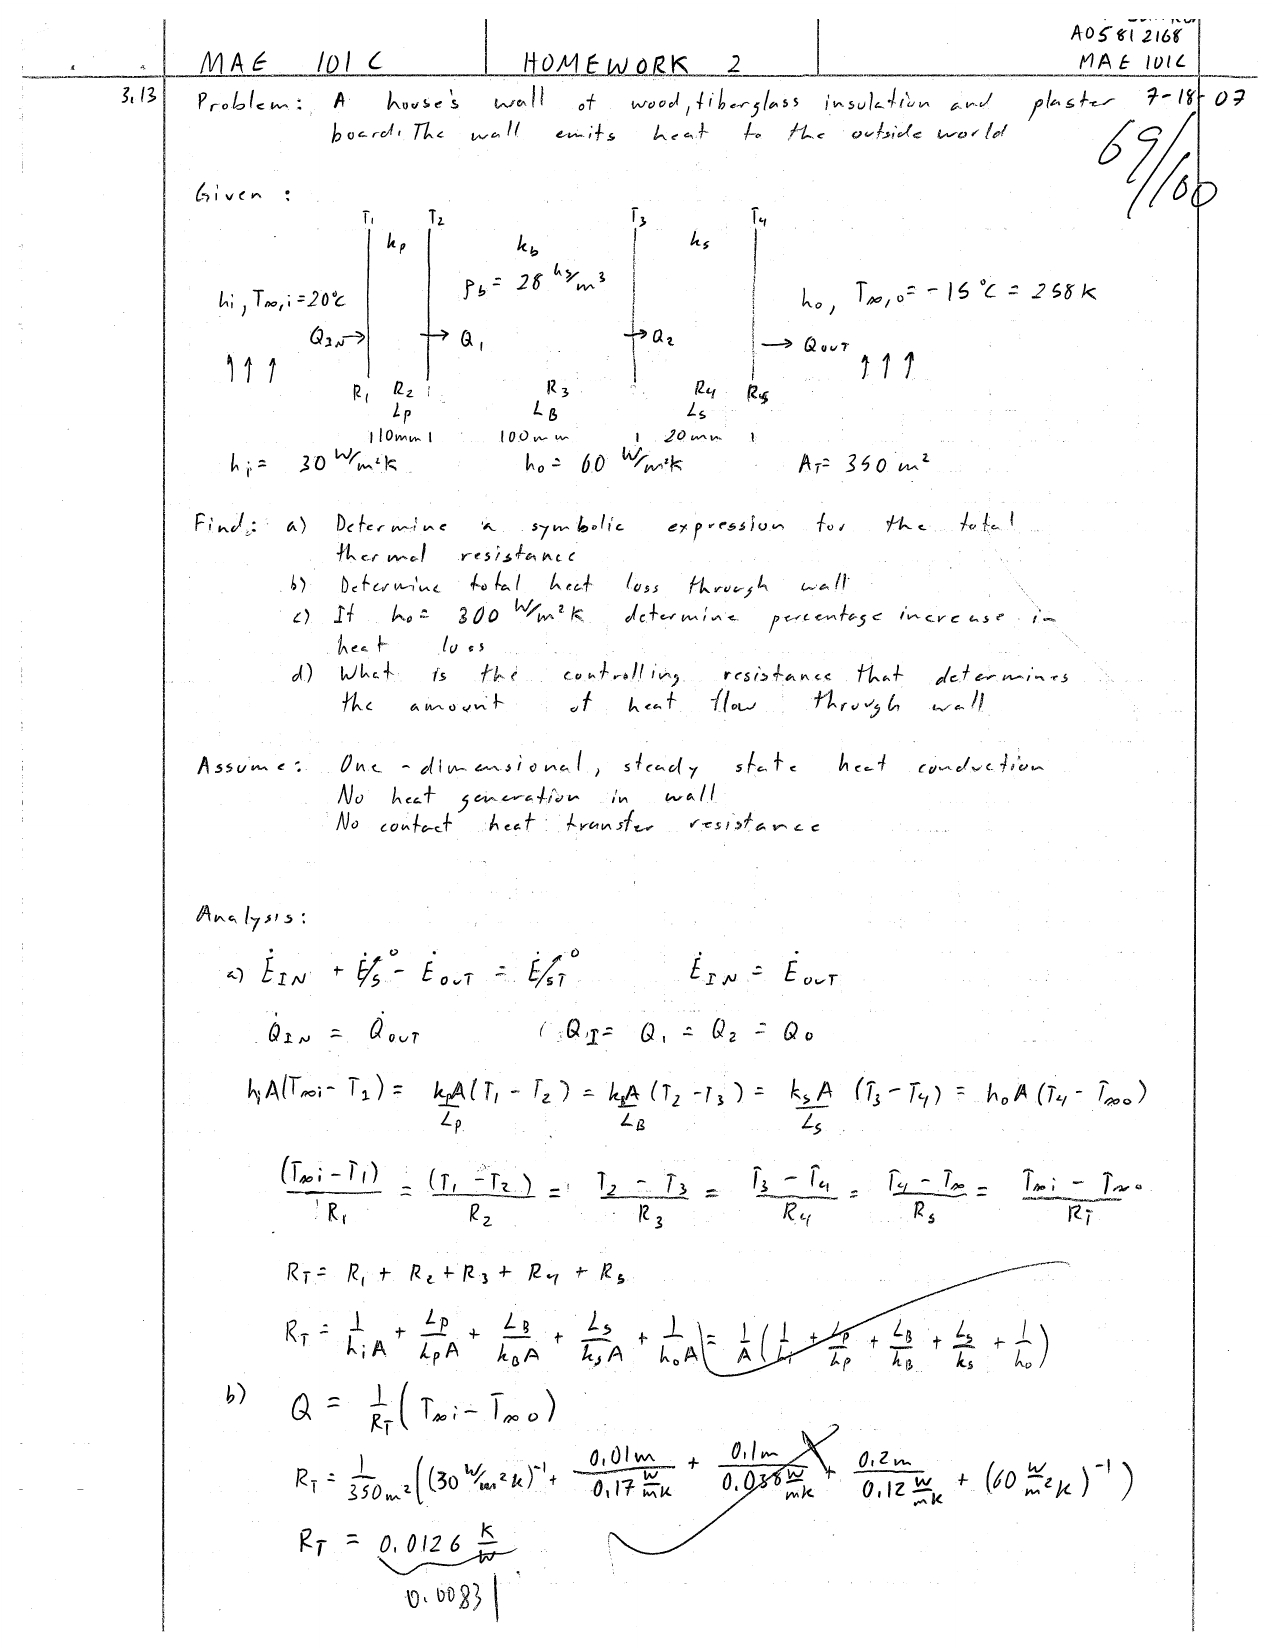 A05812168
MAE 101C HOMEWORK 2 MAE 101C
3.13 Problem: A house's wall of wood, fiberglass insulation and plaster 7-18-07
board. The wall emits heat to the outside world
69/100
Given:
T₁ T₂ T₃ T₄
kp kb ks
ρb = 28 kg/m³
hi, T∞,i = 20°C ho, T∞,o = -15°C = 258K
QIN→ → Q₁ → Q₂ → QOUT
↑↑↑ ↑↑↑
R₁ R₂ R₃ R₄ R₅
Lp LB Ls
10mm 100mm 20mm
hi = 30 W/m²K ho = 60 W/m²K AT = 350 m²
Find: a) Determine a symbolic expression for the total
thermal resistance
b) Determine total heat loss through wall
c) If ho = 300 W/m²K determine percentage increase in
heat loss
d) What is the controlling resistance that determines
the amount of heat flow through wall
Assume: One-dimensional, steady state heat conduction
No heat generation in wall
No contact heat transfer resistance
Analysis:
a) ĖIN + Ės⁰ - ĖOUT = ĖST⁰ ĖIN = ĖOUT
Q̇IN = Q̇OUT QI = Q₁ = Q₂ = Q₀
hiA(T∞i - T₁) = kpA/Lp (T₁ - T₂) = kBA/LB (T₂ - T₃) = ksA/Ls (T₃ - T₄) = hoA(T₄ - T∞o)
(T∞i - T₁)/R₁ = (T₁ - T₂)/R₂ = (T₂ - T₃)/R₃ = (T₃ - T₄)/R₄ = (T₄ - T∞)/R₅ = (T∞i - T∞o)/RT
RT = R₁ + R₂ + R₃ + R₄ + R₅
RT = 1/hiA + Lp/kpA + LB/kBA + Ls/ksA + 1/hoA = 1/A (1/hi + Lp/kp + LB/kB + Ls/ks + 1/ho)
b) Q = 1/RT (T∞i - T∞o)
RT = 1/350m² ((30 W/m²K)⁻¹ + 0.01m/0.17 W/mK + 0.1m/0.038 W/mK + 0.2m/0.12 W/mK + (60 W/m²K)⁻¹)
RT = 0.0126 K/W
0.0083